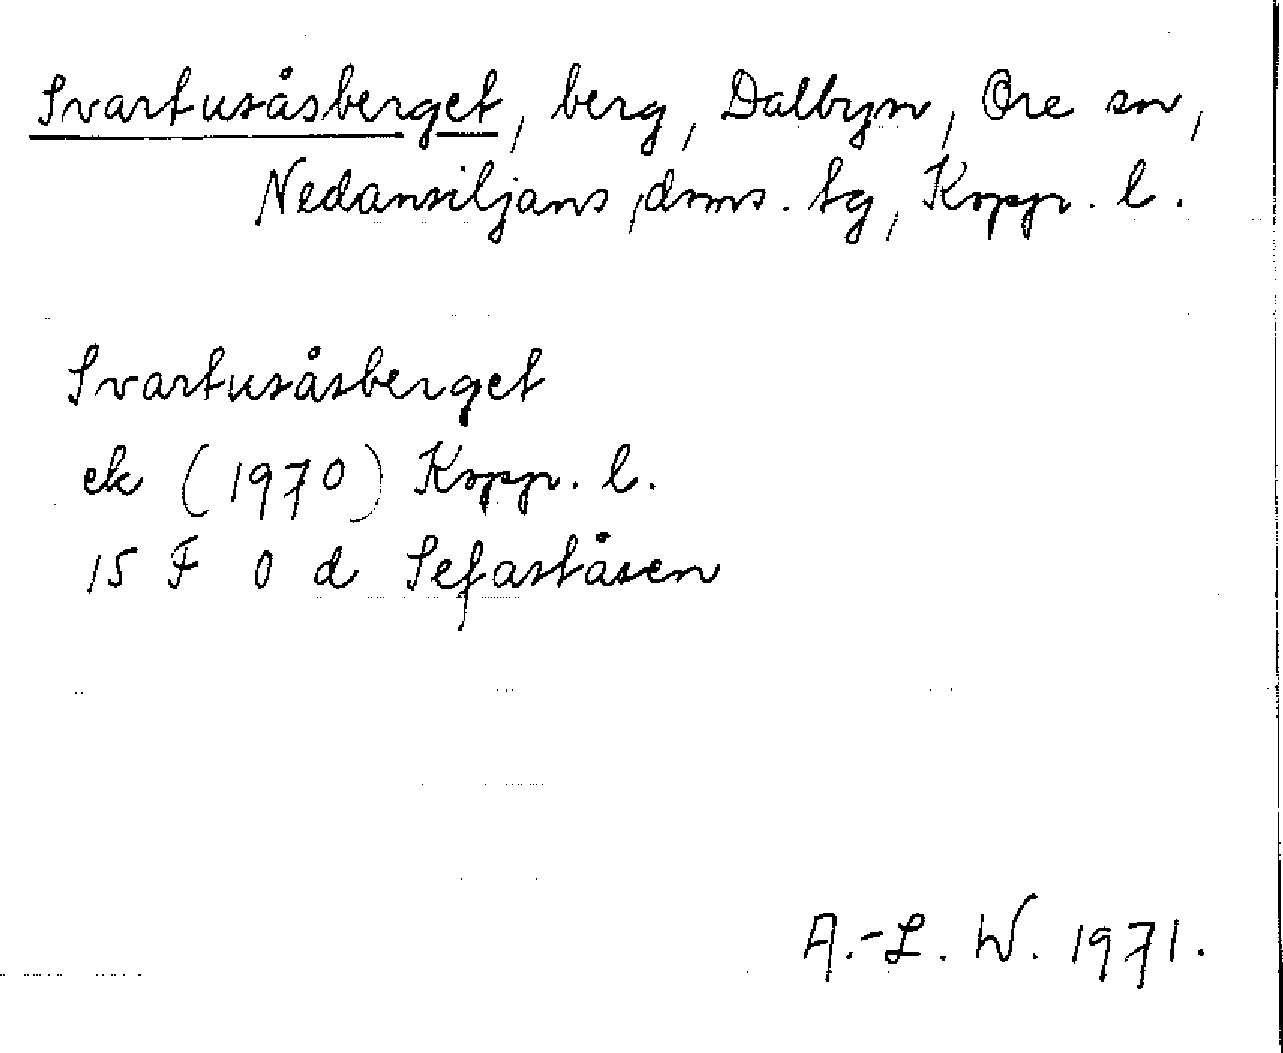 Svartusåsberget, berg, Dalbyn, Ore sn,
Nedansiljans doms. tg, Kopp. l.
Svartusåsberget
ek (1970) Kopp. l.
15 F 0 d Sefaståsen
A.-L. W. 1971.